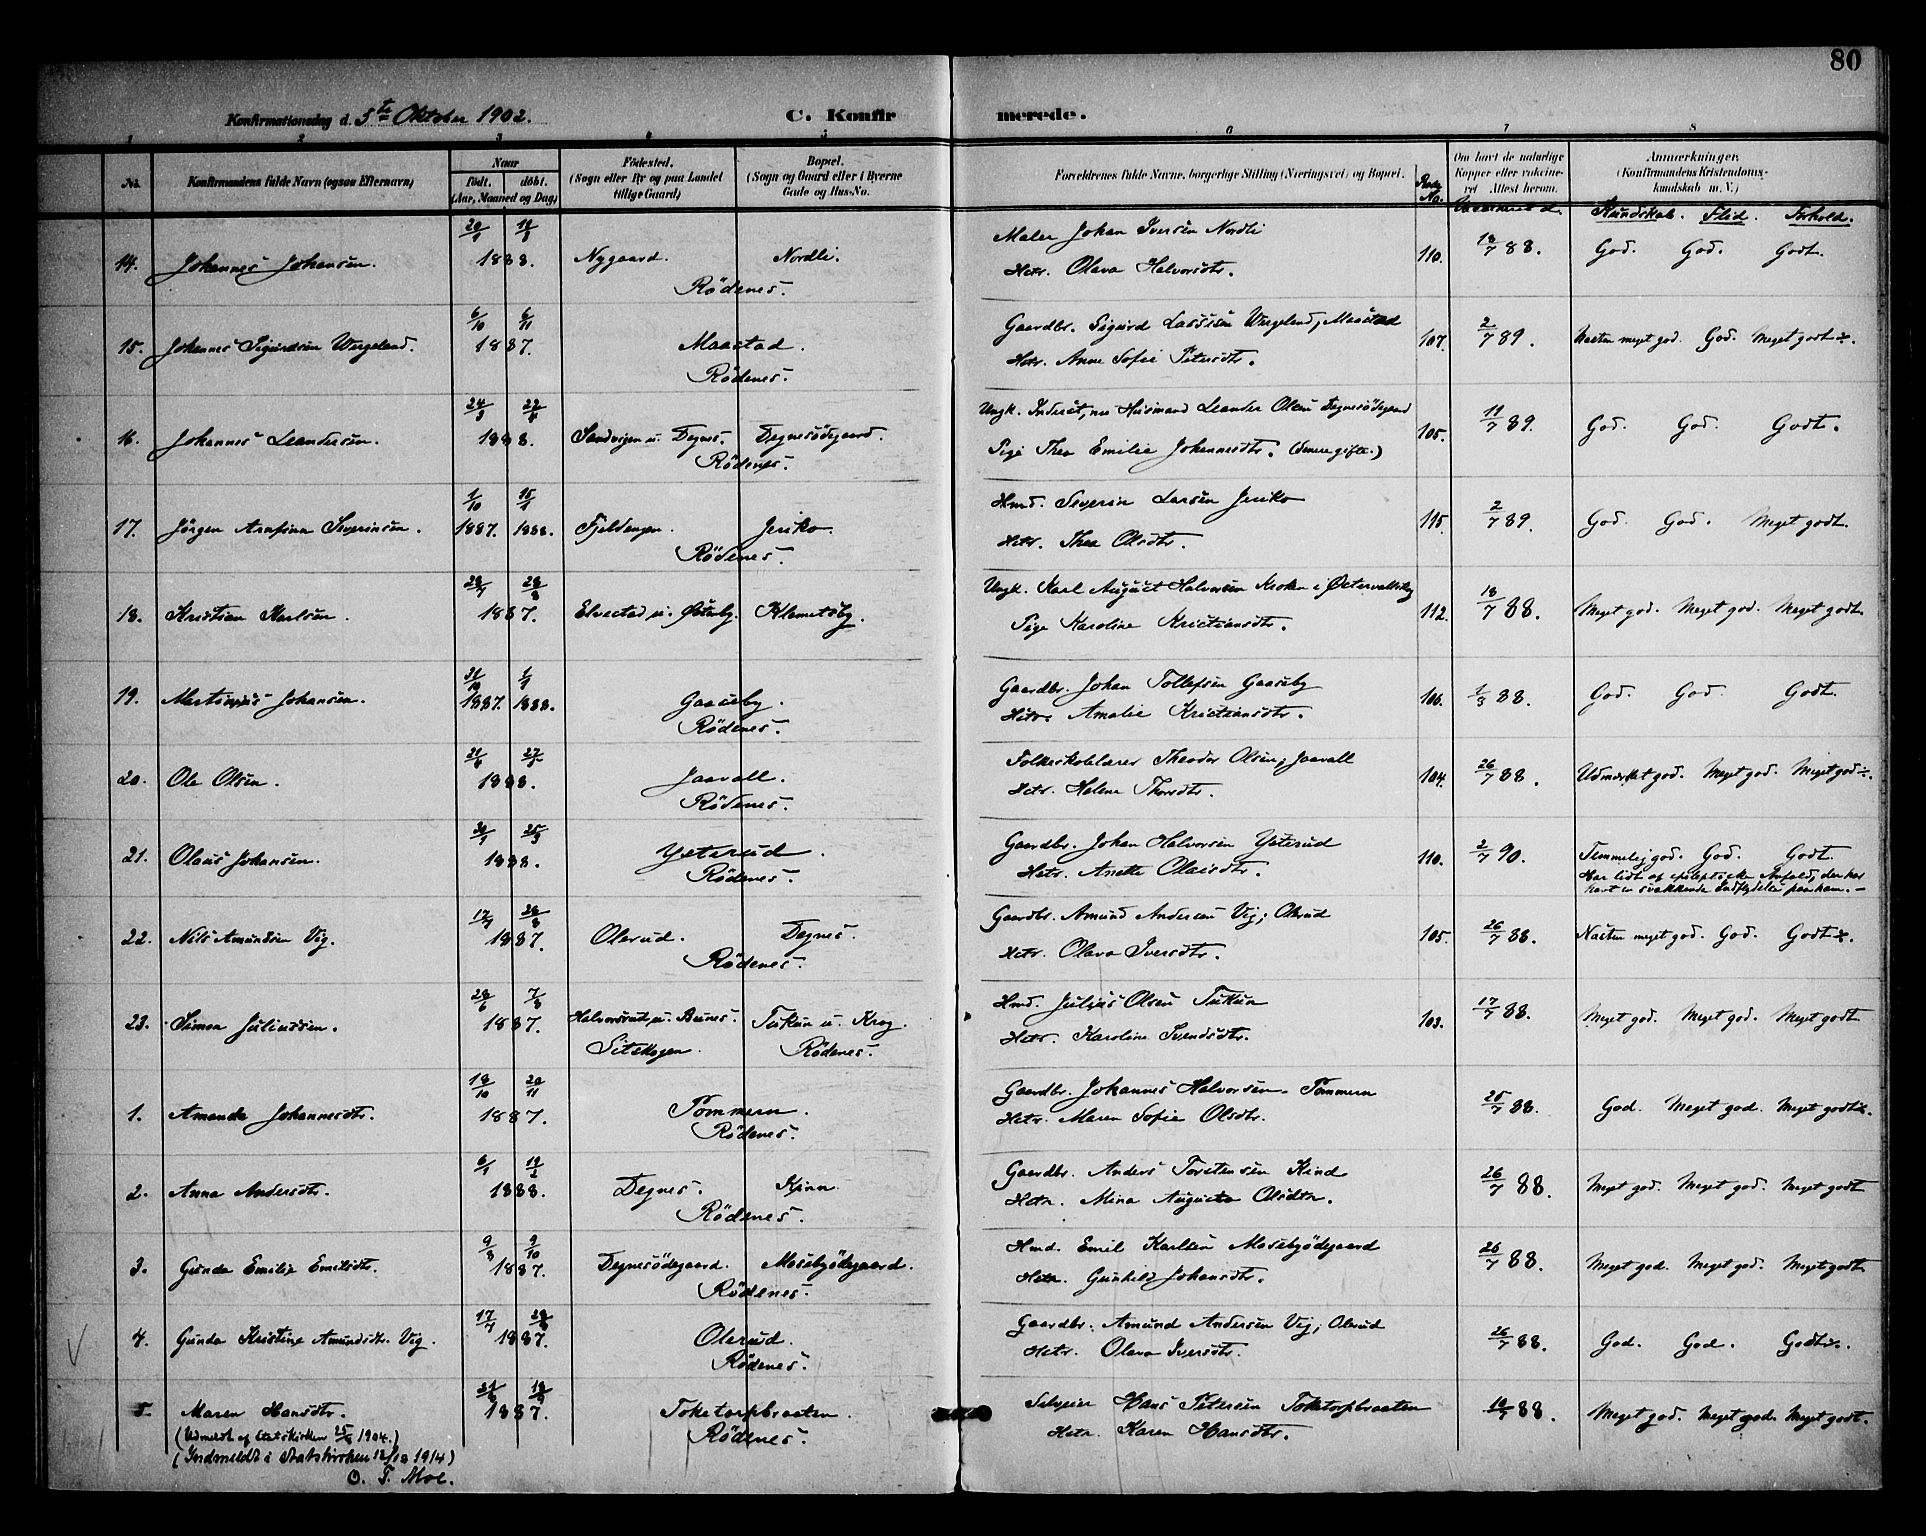 80
Konfirmationsdag d. 5te Oktober 1902.
C. Konfirmerede.
1 2 3 4 5 6 7 8
No.
Konfirmandens fulde Navn (ogsaa Efternavn)
Naar
født. døbt.
(Aar, Maaned og Dag)
Fødested.
(Sogn eller By og paa Landet
tillige Gaard)
Bopæl.
(Sogn og Gaard eller i Byerne
Gade og Hus-No.
Forældrenes fulde Navne, borgerlige Stilling (Næringsvei) og Bopæl.
No.
Om havt de naturlige
Kopper eller vakcineret
Attest herom.
Anmærkninger.
(Konfirmandens Kristendomskundskab
m. V.)
Kundskab. Flid. Forhold.
Maler Johan Iversen Nordli
14. Johannes Johansen. 1888. Nygaard. Nordli. 110. 18/7 88. God. God. Godt.
Rödenes. Hstr. Olava Halvorsdtr.
6/10 6/11 Gaardbr. Sigurd Lassesen Wergeland, Maastad
15. Johannes Sigurdsen Wergeland. 1887. Maastad. 107. 2/7 89. Næsten meget god. God. Meget godt÷.
Rödenes. Hstr. Anne Sofie Petersdtr.
24/3 22/4 Ungk. Inderst, nu Husmand Leander Olsen Degnesödegaard
16. Johannes Leandersen. 1888. Sandvigen u. Degnes. Degnesödegaard. 105. 11/7 89. God. God. Godt.
Rödenes. Pige Thea Emilie Johannesdtr. (Senere gifte.)
1/10 15/1 Hmd. Severin Larsen Jeriko
17. Jörgen Severinsen. 1887. 1888. Fjeldengen. Jeriko. 115. 2/7 89. God. God. Meget godt.
Rödenes. Hstr. Thea Olsdtr.
Ungk. Karl August Halvorsen Kroken i
18. Kristian Karlsen. 1887. Elvestad u. Østenby. Klemetsby. 112. 18/7 88. Meget god. Meget god. Meget godt.
Pige Karoline Kristiansdtr.
31/10 1/1 Gaardbr. Johan Tollefsen Gaaseby
19. Martinius Johansen. 1887. 1888. Gaaseby. 106. 1/3 88. God. God. Godt.
Rödenes. Hstr. Amalie Kristiansdtr.
Folkeskolelærer Theodor Olsen, Jaavall
20. Ole Olsen. 1888. Jaavall. 104. 26/7 88. Udmærket god. Meget god. Meget god÷.
Rödenes. Hstr. Helene Thorsdtr.
30/1 25/3 Gaardbr. Johan Halvorsen Ysterud
21. Olaus Johansen. 1888. Ysterud. 110. 2/7 90. Temmelig god. God. Godt.
Rödenes. Hstr. Anette Olausdtr. Har lidt af epileptiske Anfald, der har
havt en svækkende Indflydelse paa ham. —
17/7 28/8 Gaardbr. Amund Andersen Vig, Olerud
22. Nils Amundsen Vig. 1887. Olerud. Degnes. 105. 26/7 88. Næsten meget god. God. Godt÷.
Rödenes. Hstr. Olava Iversdtr.
28/6 7/8 Hmd. Julius Olsen Tukun
23. Simon Juliussen. 1887. Halvorsrud u. Bunes. Tukun u. Krog. 103. 17/7 88. Meget god. Meget god. Meget godt
Sitskogen. Rödenes. Hstr. Karoline Svendsdtr.
18/10 20/11 Gaardbr. Johannes Halvorsen Pommern
1. Amanda Johannesdtr. 1887. Pommern. 25/7 88. God. Meget god. Meget godt÷.
Rödenes. Hstr. Maren Sofie Olsdtr.
6/1 19/2 Gaardbr. Anders Torstensen Kind
2. Anna Andersdtr. 1888. Degnes. Kjinn. 26/7 88. Meget god. Meget god. Meget godt
Rödenes. Hstr. Mina Augusta Olsdtr.
9/8 9/10 Hmd. Emil Karlsen Mosebyödegaard
3. Gunda Emilie Emilsdtr. 1887. Degnesödegaard. Mosebyödegaard. 26/7 88. Meget god. Meget god. Meget godt
Rödenes. Hstr. Gunhild Johansdtr.
17/7 28/8 Gaardbr. Amund Andersen Vig, Olerud
4. Gunda Kristine Amundsdtr. Vig. 1887. Olerud. 26/7 88. God. God. Godt÷.
Rödenes. Hstr. Olava Iversdtr.
Selveier Hans Petersen Toketorpbraaten
5. Maren Hansdtr. 1887. Toketorpbraaten. 88. Meget god. Meget god. Meget godt.
Rödenes. Hstr. Karen Hansdtr.
(Udmeldt af Statskirken 1904.)
(Indmeldt i Statskirken 12/12 1914)
O. T. Moe.